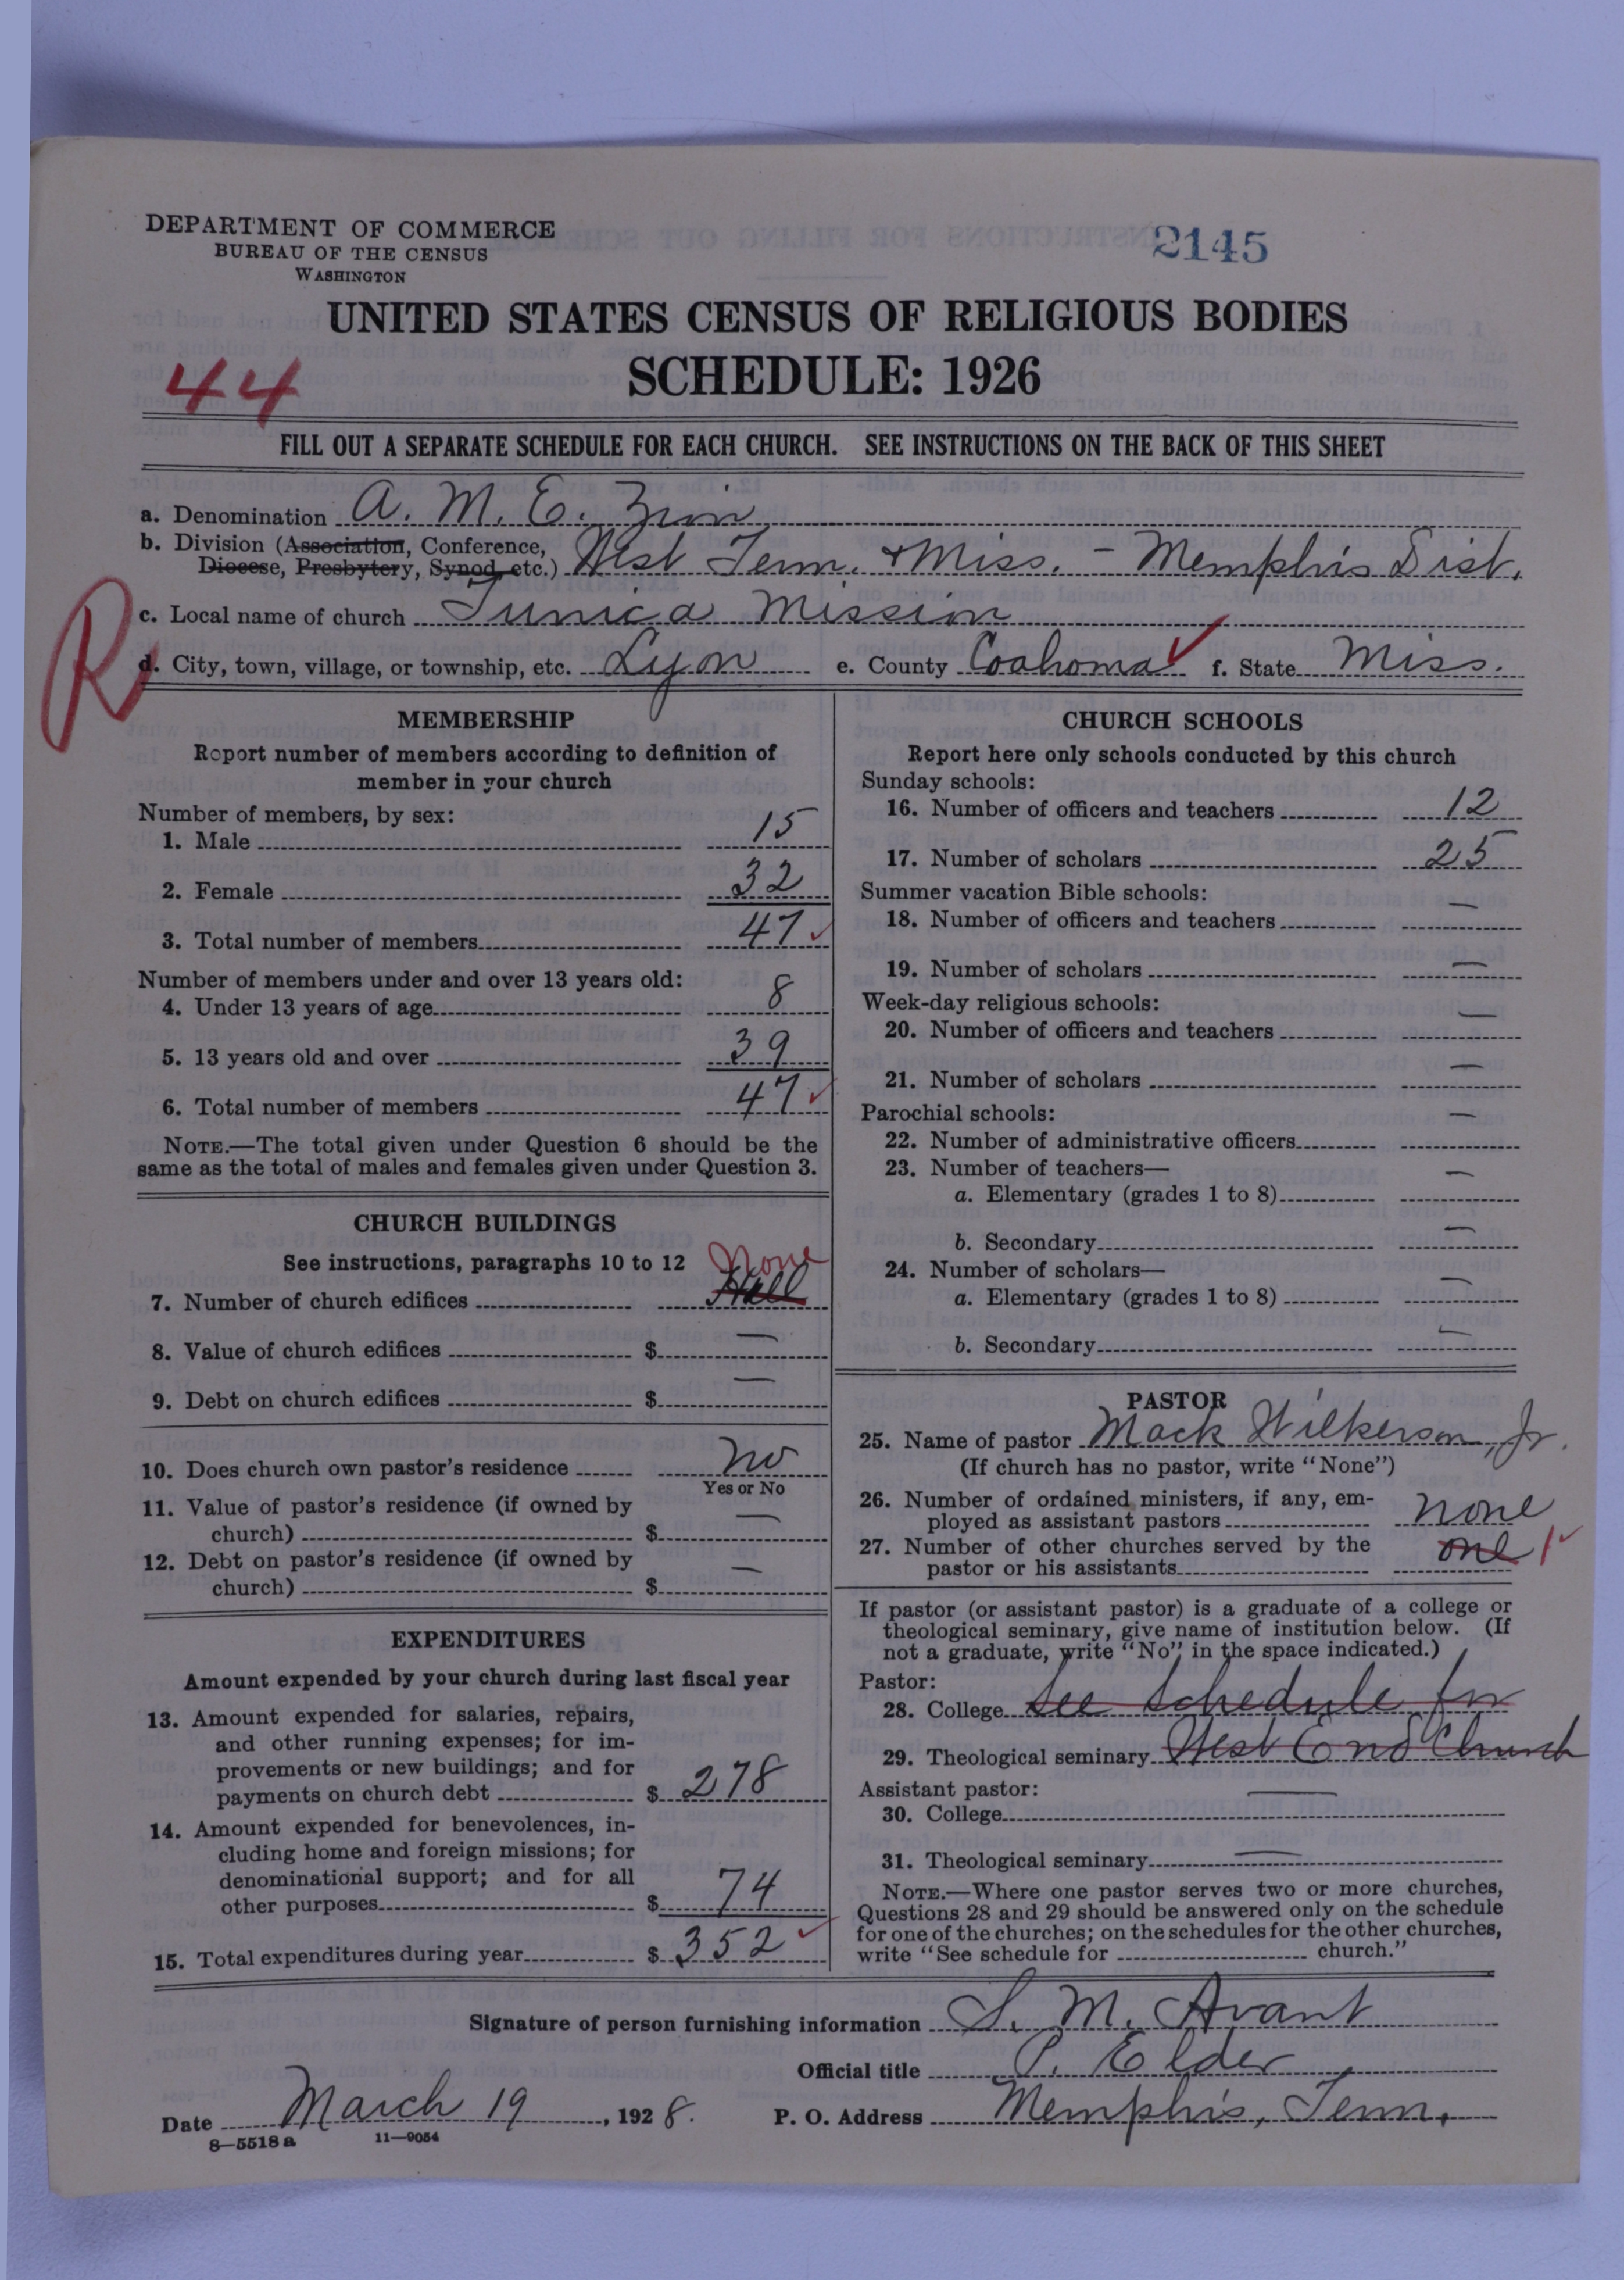 DEPARTMENT OF COMMERCE
BUREAU OF THE CENSUS
WASHINGTON
2145
UNITED STATES CENSUS OF RELIGIOUS BODIES
SCHEDULE: 1926
44
FILL OUT A SEPARATE SCHEDULE FOR EACH CHURCH. SEE INSTRUCTIONS ON THE BACK OF THIS SHEET
a. Denomination A. M. E. Zion
b. Division (Association, Conference,
Diocese, Presbytery, Synod, etc.) West Tenn. & Miss. - Memphis Dist.
c. Local name of church Tunica Mission
R
d. City, town, village, or township, etc. Lyon e. County Coahoma ✓ f. State Miss.
MEMBERSHIP
Report number of members according to definition of
member in your church
Number of members, by sex:
1. Male 15
2. Female 32
3. Total number of members 47 ✓
Number of members under and over 13 years old:
4. Under 13 years of age 8
5. 13 years old and over 39
6. Total number of members 47 ✓
NOTE.—The total given under Question 6 should be the
same as the total of males and females given under Question 3.
CHURCH BUILDINGS
See instructions, paragraphs 10 to 12 None
7. Number of church edifices Hall
8. Value of church edifices $ —
9. Debt on church edifices $ —
10. Does church own pastor's residence No
Yes or No
11. Value of pastor's residence (if owned by
church) $ —
12. Debt on pastor's residence (if owned by
church) $ —
EXPENDITURES
Amount expended by your church during last fiscal year
13. Amount expended for salaries, repairs,
and other running expenses; for im-
provements or new buildings; and for
payments on church debt $ 278
14. Amount expended for benevolences, in-
cluding home and foreign missions; for
denominational support; and for all
other purposes $ 74
15. Total expenditures during year $ 352 ✓
CHURCH SCHOOLS
Report here only schools conducted by this church
Sunday schools:
16. Number of officers and teachers 12
17. Number of scholars 25
Summer vacation Bible schools:
18. Number of officers and teachers —
19. Number of scholars —
Week-day religious schools:
20. Number of officers and teachers —
21. Number of scholars —
Parochial schools:
22. Number of administrative officers —
23. Number of teachers—
a. Elementary (grades 1 to 8) —
b. Secondary —
24. Number of scholars—
a. Elementary (grades 1 to 8) —
b. Secondary —
PASTOR
25. Name of pastor Mack Wilkerson, Jr.
(If church has no pastor, write "None")
26. Number of ordained ministers, if any, em-
ployed as assistant pastors none
27. Number of other churches served by the
pastor or his assistants one 1 ✓
If pastor (or assistant pastor) is a graduate of a college or
theological seminary, give name of institution below. (If
not a graduate, write "No" in the space indicated.)
Pastor:
28. College See schedule for
29. Theological seminary West End Church
Assistant pastor:
30. College —
31. Theological seminary —
NOTE.—Where one pastor serves two or more churches,
Questions 28 and 29 should be answered only on the schedule
for one of the churches; on the schedules for the other churches,
write "See schedule for church."
Signature of person furnishing information S. M. Avant
Official title P. Elder
Date March 19, 1928. P. O. Address Memphis, Tenn.
8—5518 a 11—9054